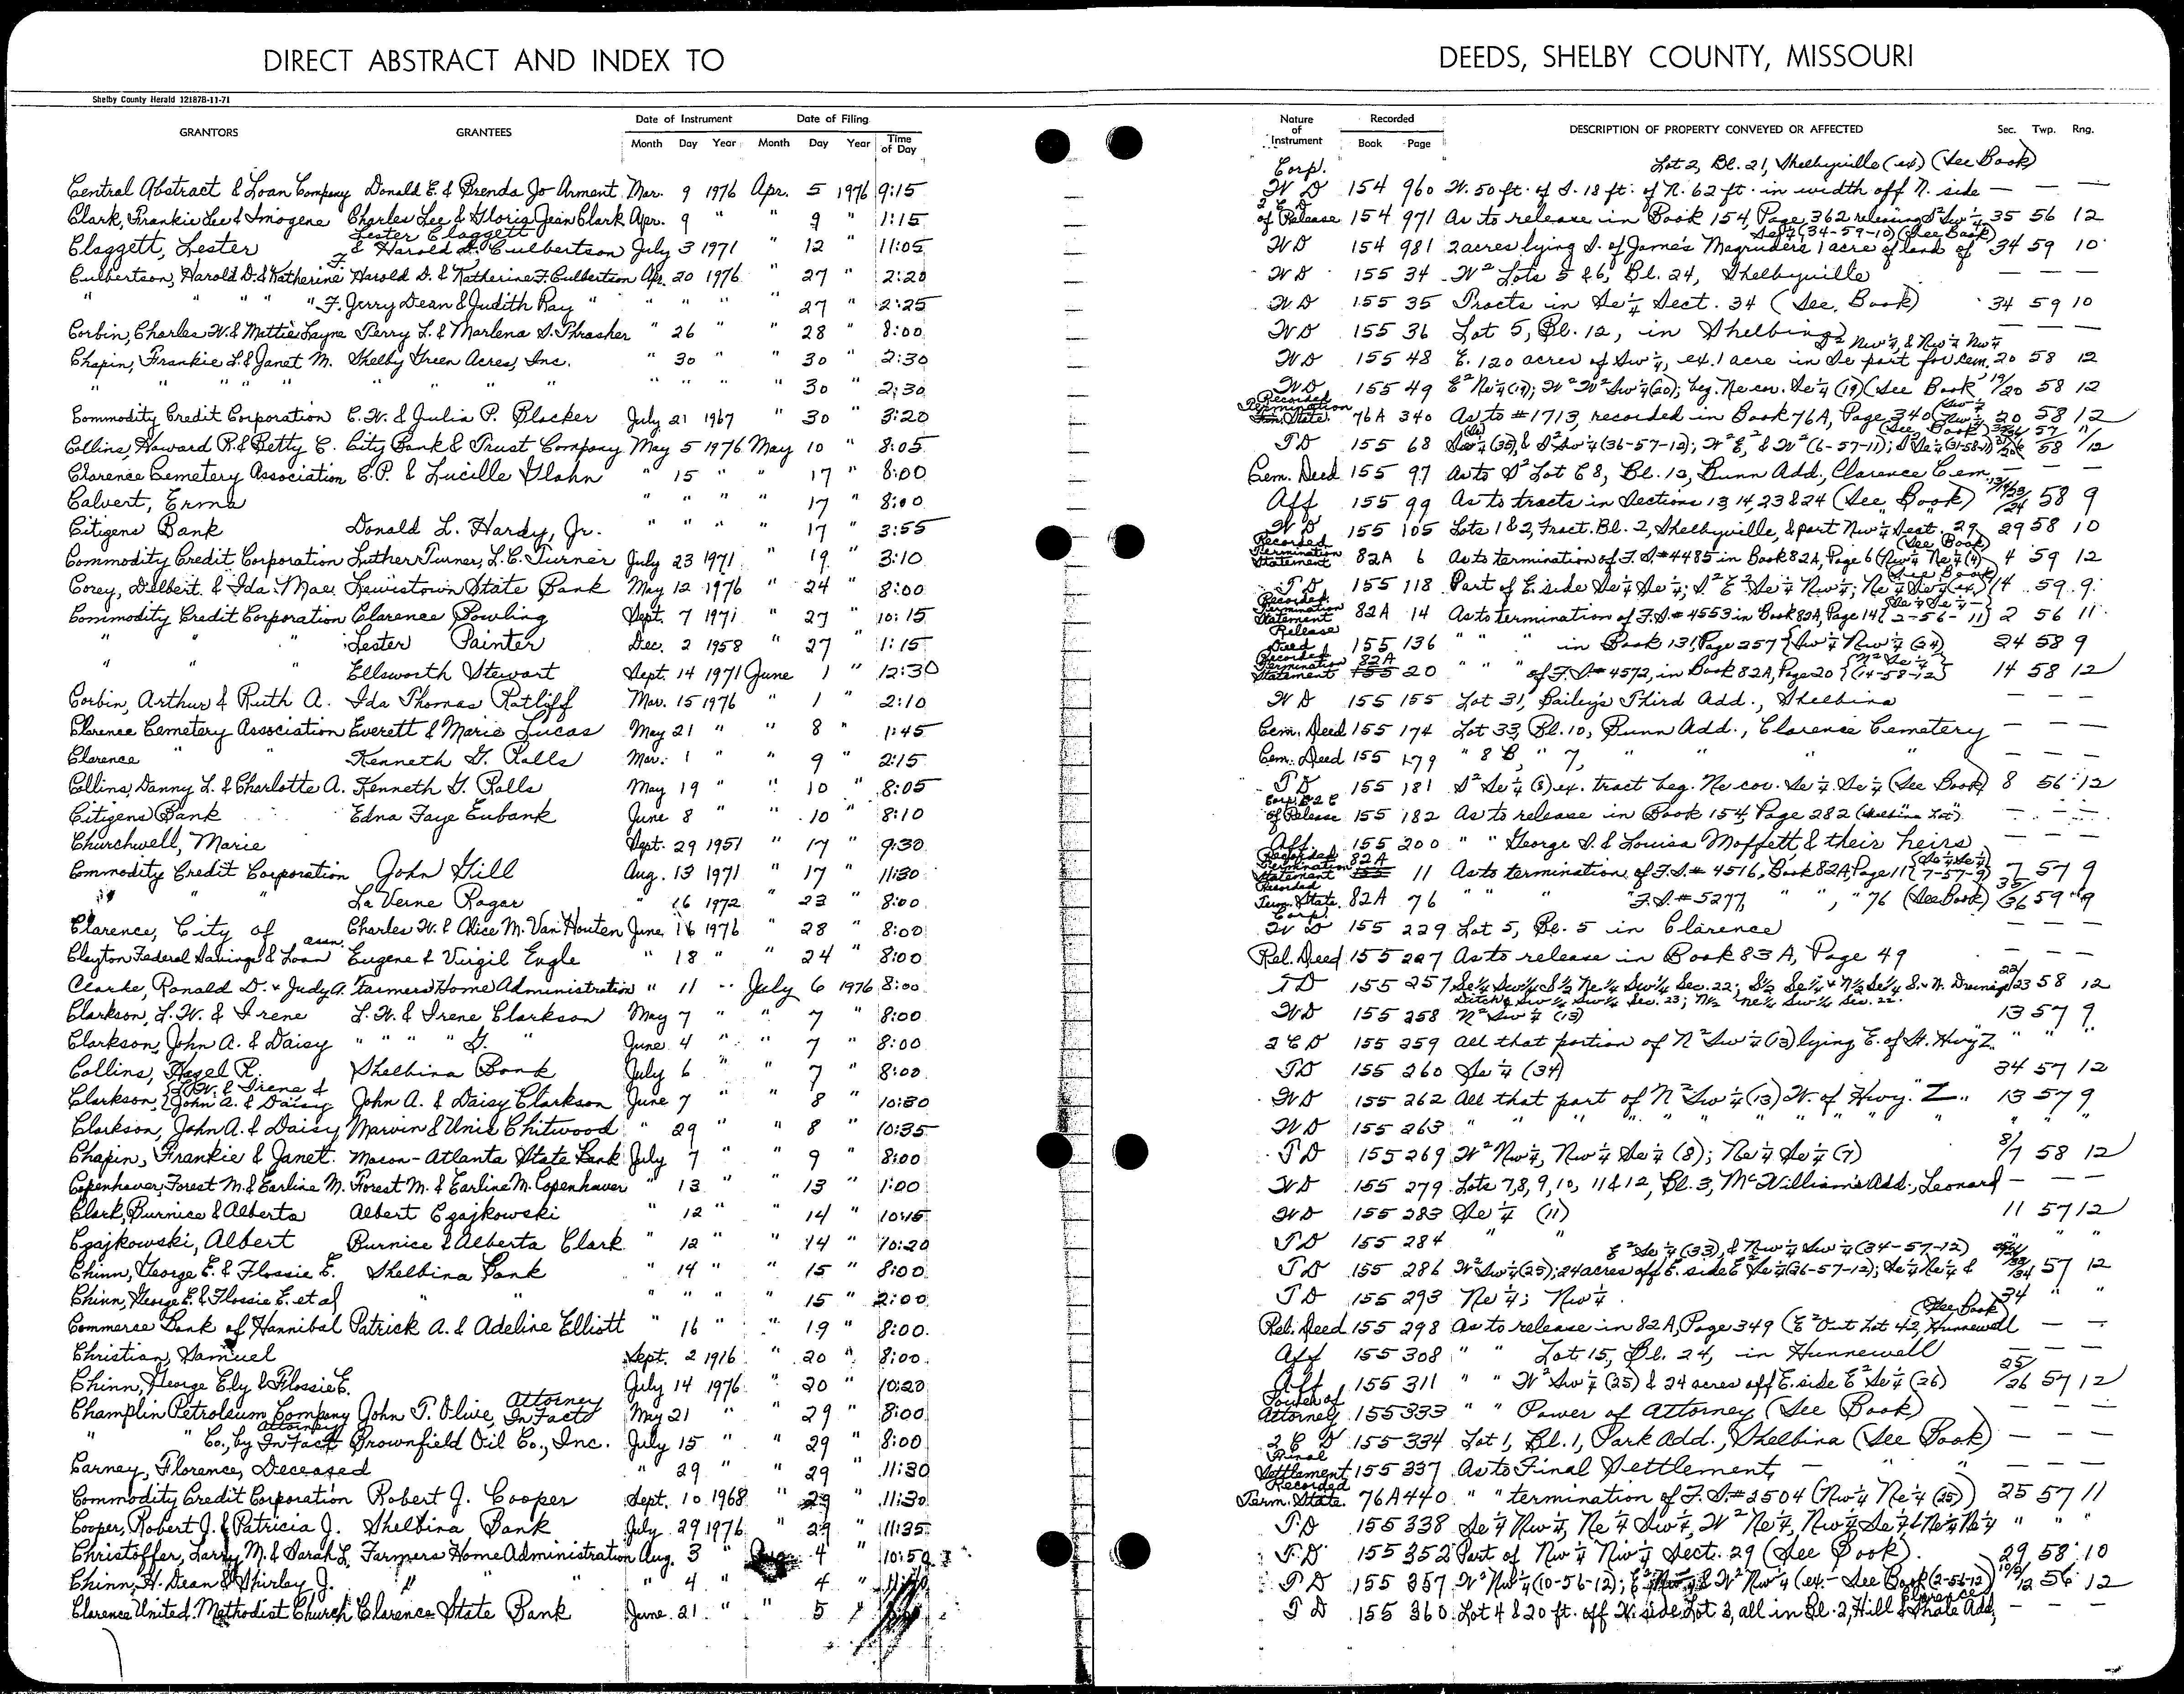 DIRECT ABSTRACT AND INDEX TO
DEEDS, SHELBY COUNTY, MISSOURI
Shelby County Herald 121878-11-71
GRANTORS GRANTEES Date of Instrument Month Day Year Date of Filing Month Day Year Time of Day Nature of Instrument Recorded Book Page DESCRIPTION OF PROPERTY CONVEYED OR AFFECTED Sec. Twp. Rng.
Corp. Lot 2, Bl. 21, Shelbyville (ex) (See Book)
Central Abstract & Loan Company Donald E. & Brenda Jo Arment Mar. 9 1976 Apr. 5 1976 9:15 W D 154 960 W. 50 ft. of S. 18 ft. of N. 62 ft. in width off N. side — — —
Clark, Frankie Lee & Imogene Charles Lee & Gloria Jean Clark Apr. 9 " " 9 " 1:15 2 C D of Release 154 971 As to release in Book 154, Page 362 releasing S² Sw ¼ 35 56 12
Claggett, Lester Lester Claggett & Harold D. Culbertson July 3 1971 " 12 " 11:05 W D 154 981 2 acres lying S. of James Magruders 1 acre of land of Se ¼ (34-59-10) (See Book) 34 59 10
Culbertson, Harold D. & Katherine F. Harold D. & Katherine F. Culbertson Apr. 20 1976 " 27 " 2:20 W D 155 34 W² Lots 5 & 6, Bl. 24, Shelbyville — — —
" " " " " F. Jerry Dean & Judith Ray " " " " " 27 " 2:25 W D 155 35 Tracts in Se ¼ Sect. 34 (See Book) 34 59 10
Corbin, Charles W. & Mattie Layne Terry L. & Marlena S. Thrasher " 26 " " 28 " 8:00 W D 155 36 Lot 5, Bl. 12, in Shelbina — — —
Chapin, Frankie L. & Janet M. Shelby Green Acres, Inc. " 30 " " 30 " 2:30 W D 155 48 E. 120 acres of Sw ¼, ex. 1 acre in Se part for cem. S² Nw ¼, & Nw ¼ Nw ¼ 20 58 12
" " " " " " " " " " " " " 30 " 2:30 W D 155 49 E² Ne ¼ (19); W² W² Sw ¼ (20); beg. Ne cor. Se ¼ (19) (See Book 19/20 58 12
Commodity Credit Corporation C. W. & Julia P. Blacker July 21 1967 " 30 " 3:20 Recorded Termination State. 76A 340 As to #1713, recorded in Book 76A, Page 340 20 58 12
Collins, Howard R. & Betty C. City Bank & Trust Company May 5 1976 May 10 " 8:05 T D 155 68 Sw ¼ (35), & S² Sw ¼ (36-57-12); W² E², & W² (6-57-11); (See Book)
Clarence Cemetery Association E. P. & Lucille Glahn " 15 " " 17 " 8:00 Cem. Deed 155 97 As to S² Lot 68, Bl. 13, Bunn Add., Clarence Cem. — — —
Calvert, Erma " " " " 17 " 8:00 Aff 155 99 As to tracts in Sections 13, 14, 23 & 24 (See Book) 13/14/23/24 58 9
Citizens Bank Donald L. Hardy, Jr. " " " " 17 " 3:55 W D 155 105 Lots 1 & 2, Fract. Bl. 2, Shelbyville, & part Nw ¼ Sect. 29 (See Book) 29 58 10
Commodity Credit Corporation Luther Turner, L. C. Turner July 23 1971 " 19 " 3:10 Recorded Termination Statement 82A 6 As to termination of F. S. #4485 in Book 82A, Page 6 (Nw ¼ Ne ¼ (4) 4 59 12
Corey, Delbert & Ida Mae Lewistown State Bank May 12 1976 " 24 " 8:00 T D 155 118 Part of E. side Se ¼ Se ¼; S² E² Se ¼ Nw ¼; Ne ¼ Sw ¼ (ex) (See Book) 14 59 9
Commodity Credit Corporation Clarence Powling Sept. 7 1971 " 27 " 10:15 Recorded Termination Statement 82A 14 As to termination of F. S. #4553 in Book 82A, Page 14 (Se ¼ Se ¼ — 2-56-11) 2 56 11
" " " Lester Painter Dec. 2 1958 " 27 " 1:15 Release Deed 155 136 " " " in Book 131, Page 257 {Sw ¼ Nw ¼ (24) 24 58 9
" " " Ellsworth Stewart Sept. 14 1971 June 1 " 12:30 Recorded Termination Statement 82A 20 " " " of F. S. #4572, in Book 82A, Page 20 {N² Se ¼ (14-58-12)} 14 58 12
Corbin, Arthur & Ruth A. Ida Thomas Ratliff Mar. 15 1976 " 1 " 2:10 W D 155 155 Lot 31, Bailey's Third Add., Shelbina — — —
Clarence Cemetery Association Everett & Marie Lucas May 21 " " 8 " 1:45 Cem. Deed 155 174 Lot 33, Bl. 10, Bunn Add., Clarence Cemetery — — —
Clarence " " Kenneth G. Ralls Mar. 1 " " 9 " 2:15 Cem. Deed 155 179 " 8 B, " 7, " " " " — — —
Collins, Danny L. & Charlotte A. Kenneth G. Ralls May 19 " " 10 " 8:05 T D 155 181 S² Se ¼ (8) ex. tract beg. Ne cor. Se ¼ Se ¼ (See Book) 8 56 12
Citizens Bank Edna Faye Eubank June 8 " " 10 " 8:10 Corp. D 2 C of Release 155 182 As to release in Book 154, Page 282 (Shelbina Lot) — — —
Churchwell, Marie Sept. 29 1951 " 17 " 9:30 Aff. 155 200 " " George S. & Louisa Moffett & their heirs — — —
Commodity Credit Corporation John Gill Aug. 13 1971 " 17 " 11:30 Recorded Termination Statement 82A 11 As to termination of F. S. # 4516, Book 82A, Page 11 (Se ¼ Se ¼ 7-57-9) 7 57 9
" " " La Verne Ragar " 16 1972 " 23 " 8:00 Recorded Term. State. 82A 76 " " " " F. S. #5277, " ", " 76 (See Book) 35/36 59 9
Clarence, City of Charles W. & Alice M. Van Houten June 16 1976 " 28 " 8:00 Corp. W D 155 229 Lot 5, Bl. 5 in Clarence — — —
Clayton Federal Savings & Loan assn. Eugene & Virgil Engle " 18 " " 24 " 8:00 Rel. Deed 155 227 As to release in Book 83A, Page 49 — — —
Clarke, Ronald D. & Judy A. Farmers Home Administration " 11 " July 6 1976 8:00 T D 155 257 Se¼ Sw¼; S½ Ne¼ Sw¼ Sec. 22; S½ Se¼ & N½ Se¼ S. & N. Drainage Ditch; Sw¼ Sw¼ Sec. 23; N½ Ne¼ Sw¼ Sec. 22 22/23 58 12
Clarkson, L. W. & Irene L. W. & Irene Clarkson May 7 " " 7 " 8:00 W D 155 258 N² Sw ¼ (13) 13 57 9
Clarkson, John A. & Daisy " " " " G. " June 4 " " 7 " 8:00 2 C D 155 259 All that portion of N² Sw ¼ (13) lying E. of St. Hwy Z " " "
Collins, Hazel R. Shelbina Bank July 6 " " 7 " 8:00 T D 155 260 Se ¼ (34) 34 57 12
Clarkson, {L. W. & Irene & John A. & Daisy John A. & Daisy Clarkson June 7 " " 8 " 10:30 W D 155 262 All that part of N² Sw ¼ (13) W. of Hwy. "Z" 13 57 9
Clarkson, John A. & Daisy Marvin & Unis Chitwood " 29 " " 8 " 10:35 W D 155 263 " " " " " " " " " " " " "
Chapin, Frankie & Janet. Macon-Atlanta State Bank July 7 " " 9 " 8:00 T D 155 269 W² Nw ¼, Nw ¼ Se ¼ (8); Ne ¼ Se ¼ (7) 8/7 58 12
Copenhaver, Forest M. & Earline M. Forest M. & Earline M. Copenhaver " 13 " " 13 " 1:00 W D 155 279 Lots 7, 8, 9, 10, 11 & 12, Bl. 3, McWilliams Add., Leonard — — —
Clark, Burnice & Alberta Albert Czajkowski " 12 " " 14 " 10:15 W D 155 283 Se ¼ (11) 11 57 12
Czajkowski, Albert Burnice & Alberta Clark " 12 " " 14 " 10:20 T D 155 284 " " " " "
Chinn, George E. & Flossie E. Shelbina Bank " 14 " " 15 " 8:00 T D 155 286 W² Sw ¼ (25); 24 acres off E. side E² Se ¼ (26-57-12); Se ¼ Ne ¼ & E² Se ¼ (33), & Nw ¼ Sw ¼ (34-57-12) 57 12
Chinn, George E. & Flossie E. et al " " " " " " 15 " 2:00 T D 155 293 Ne ¼; Nw ¼ 34 " "
Commerce Bank of Hannibal Patrick A. & Adeline Elliott " 16 " " 19 " 8:00 Rel. Deed 155 298 As to release in 82A, Page 349 (E² Out Lot 42, Hunnewell (See Book) — —
Christian, Samuel Sept. 2 1916 " 20 " 8:00 Aff 155 308 " " Lot 15, Bl. 24, in Hunnewell — — —
Chinn, George Ely & Flossie E. July 14 1976 " 20 " 10:20 Aff 155 311 " " W² Sw ¼ (25) & 24 acres off E. side E² Se ¼ (26) 25/26 57 12
Champlin Petroleum Company John T. Olive, Attorney In Fact May 21 " " 29 " 8:00 Power of Attorney 155 333 " " Power of Attorney (See Book) — — —
" " Co., by Attorney In Fact Brownfield Oil Co., Inc. July 15 " " 29 " 8:00 2 C D 155 334 Lot 1, Bl. 1, Park Add., Shelbina (See Book) — — —
Carney, Florence, Deceased " 29 " " 29 " 11:30 Final Settlement 155 337 As to Final Settlement — " " — — —
Commodity Credit Corporation Robert J. Cooper Sept. 10 1968 " 29 " 11:30 Recorded Term. State. 76A 440 " " termination of F. S. #2504 (Nw ¼ Ne ¼ (25)) 25 57 11
Cooper, Robert J. & Patricia J. Shelbina Bank July 29 1976 " 29 " 11:35 T D 155 338 Se ¼ Nw ¼, Ne ¼ Sw ¼, W² Ne ¼, Nw ¼ Se ¼ & Ne ¼ Ne ¼ " " "
Christoffer, Larry M. & Sarah L. Farmers Home Administration Aug. 3 " Aug. 4 " 10:50 T D 155 352 Part of Nw ¼ Nw ¼ Sect. 29 (See Book) 29 58 10
Chinn, H. Dean & Shirley J. " " " " 4 " 4 " T D 155 357 W² Nw ¼ (10-56-12); & W² Nw ¼ (ex. - See Book (2-56-12) 56 12
Clarence United Methodist Church Clarence State Bank June 21 " " 5 T D 155 360 Lot 4 & 20 ft. off W. side Lot 3, all in Bl. 2, Hill & Shale Add., Clarence — — —